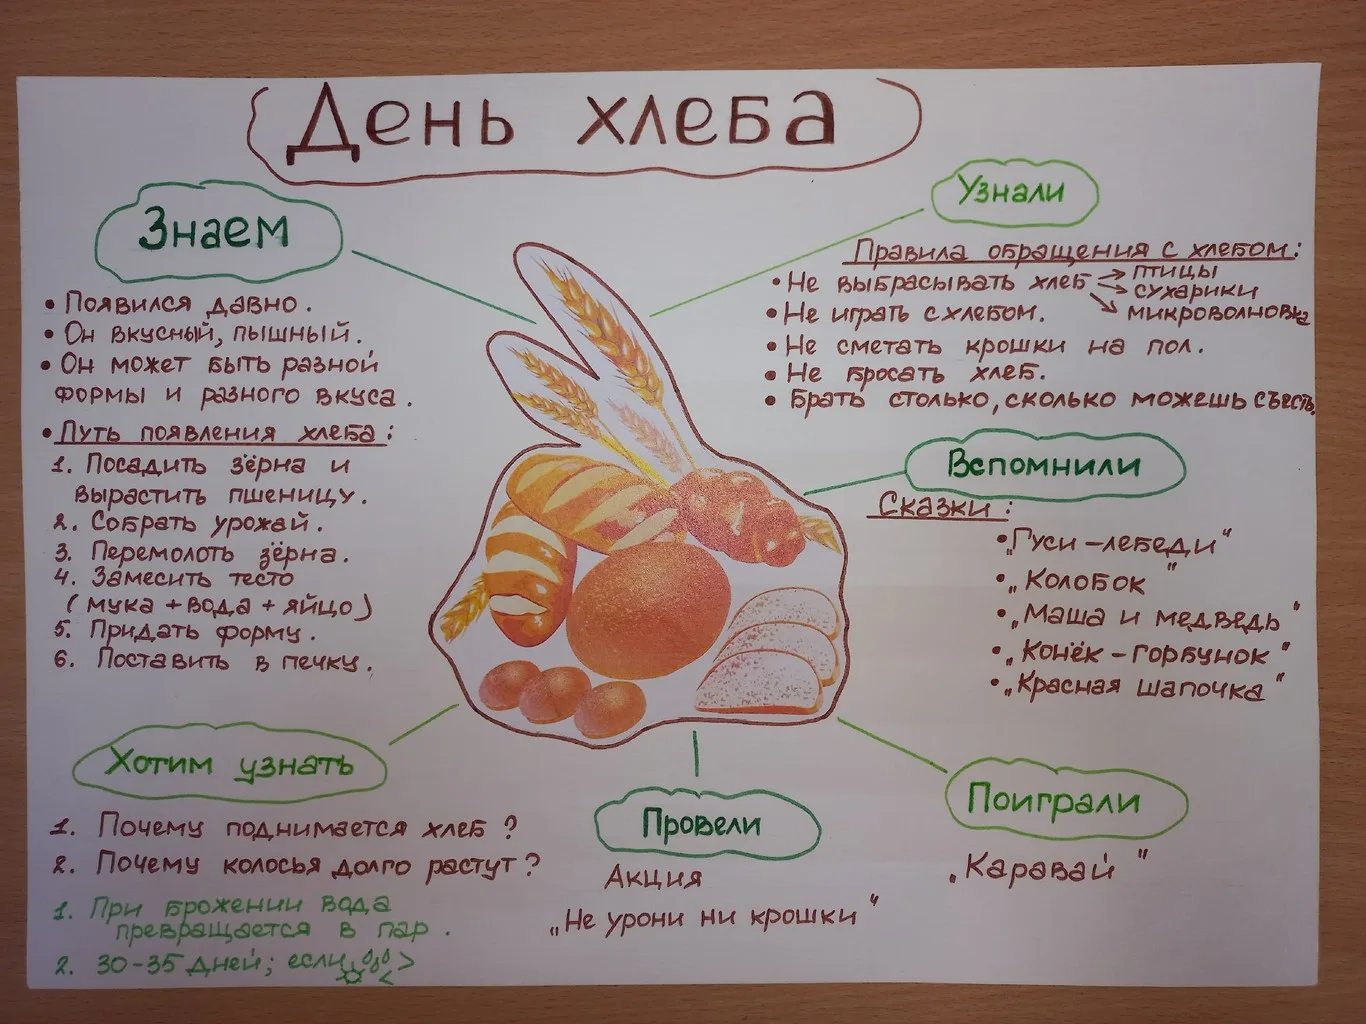 День хлеба
Знаем
• Появился давно.
• Он вкусный, пышный.
• Он может быть разной
формы и разного вкуса.
• Путь появления хлеба:
1. Посадить зёрна и
вырастить пшеницу.
2. Собрать урожай.
3. Перемолоть зёрна.
4. Замесить тесто
(мука + вода + яйцо)
5. Придать форму.
6. Поставить в печку.
Узнали
Правила обращения с хлебом:
• Не выбрасывать хлеб → птицы
→ сухарики
→ микроволновка
• Не играть с хлебом.
• Не сметать крошки на пол.
• Не бросать хлеб.
• Брать столько, сколько можешь съесть.
Вспомнили
Сказки:
• „Гуси-лебеди"
• „Колобок"
• „Маша и медведь"
• „Конёк-горбунок"
• „Красная шапочка"
Хотим узнать
1. Почему поднимается хлеб?
2. Почему колосья долго растут?
1. При брожении вода
превращается в пар.
2. 30-35 дней; если > <
Провели
Акция
„Не урони ни крошки"
Поиграли
„Каравай"